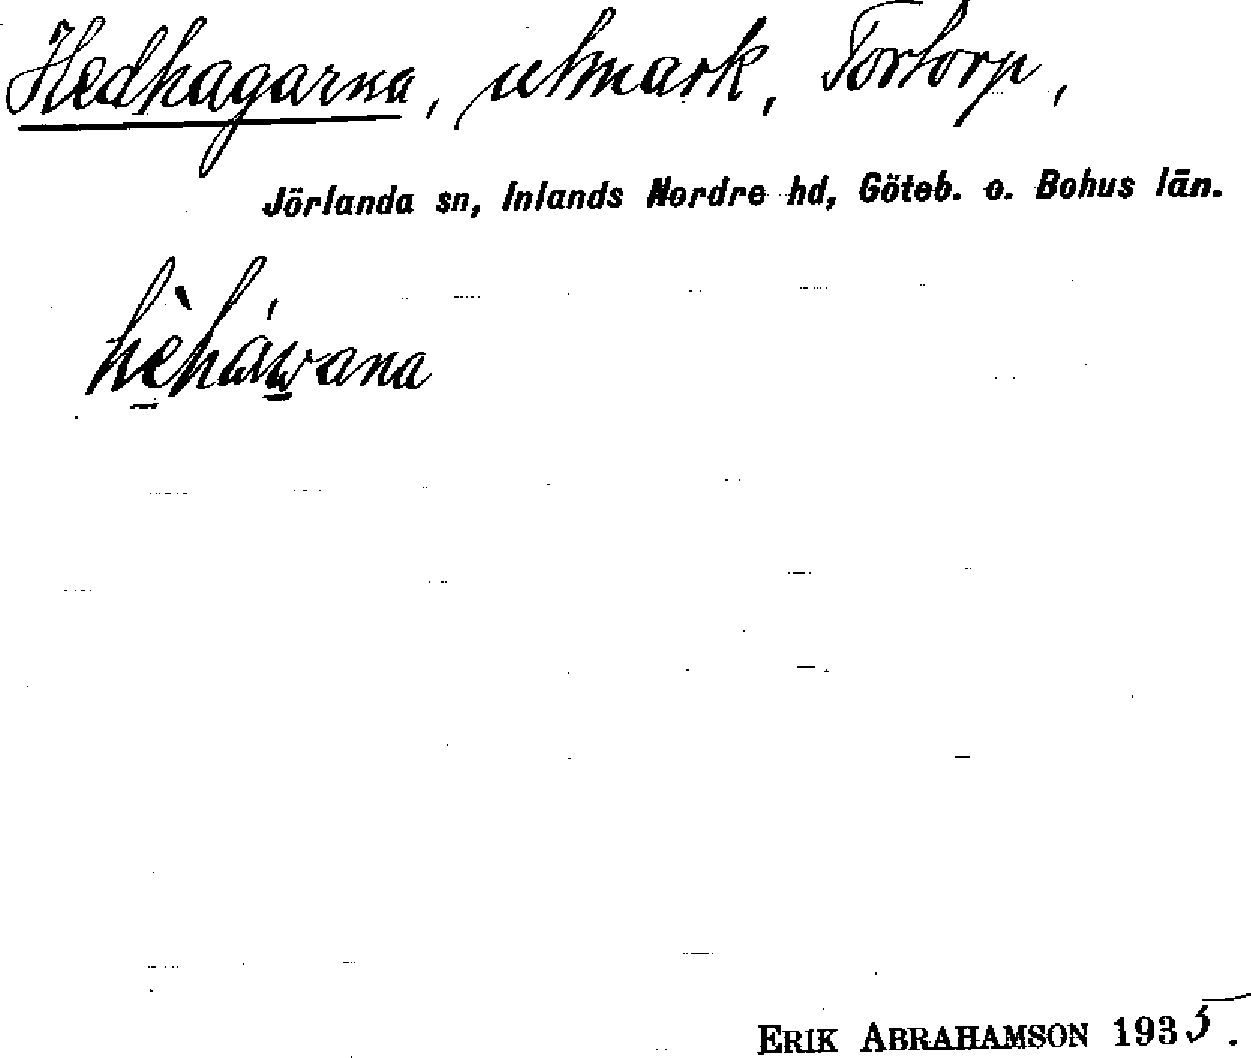 Hedhagarna, utmark, Tortorp,
Jörlanda sn, Inlands Nordre hd, Göteb. o. Bohus län.
hèháwana
ERIK ABRAHAMSON 1935.